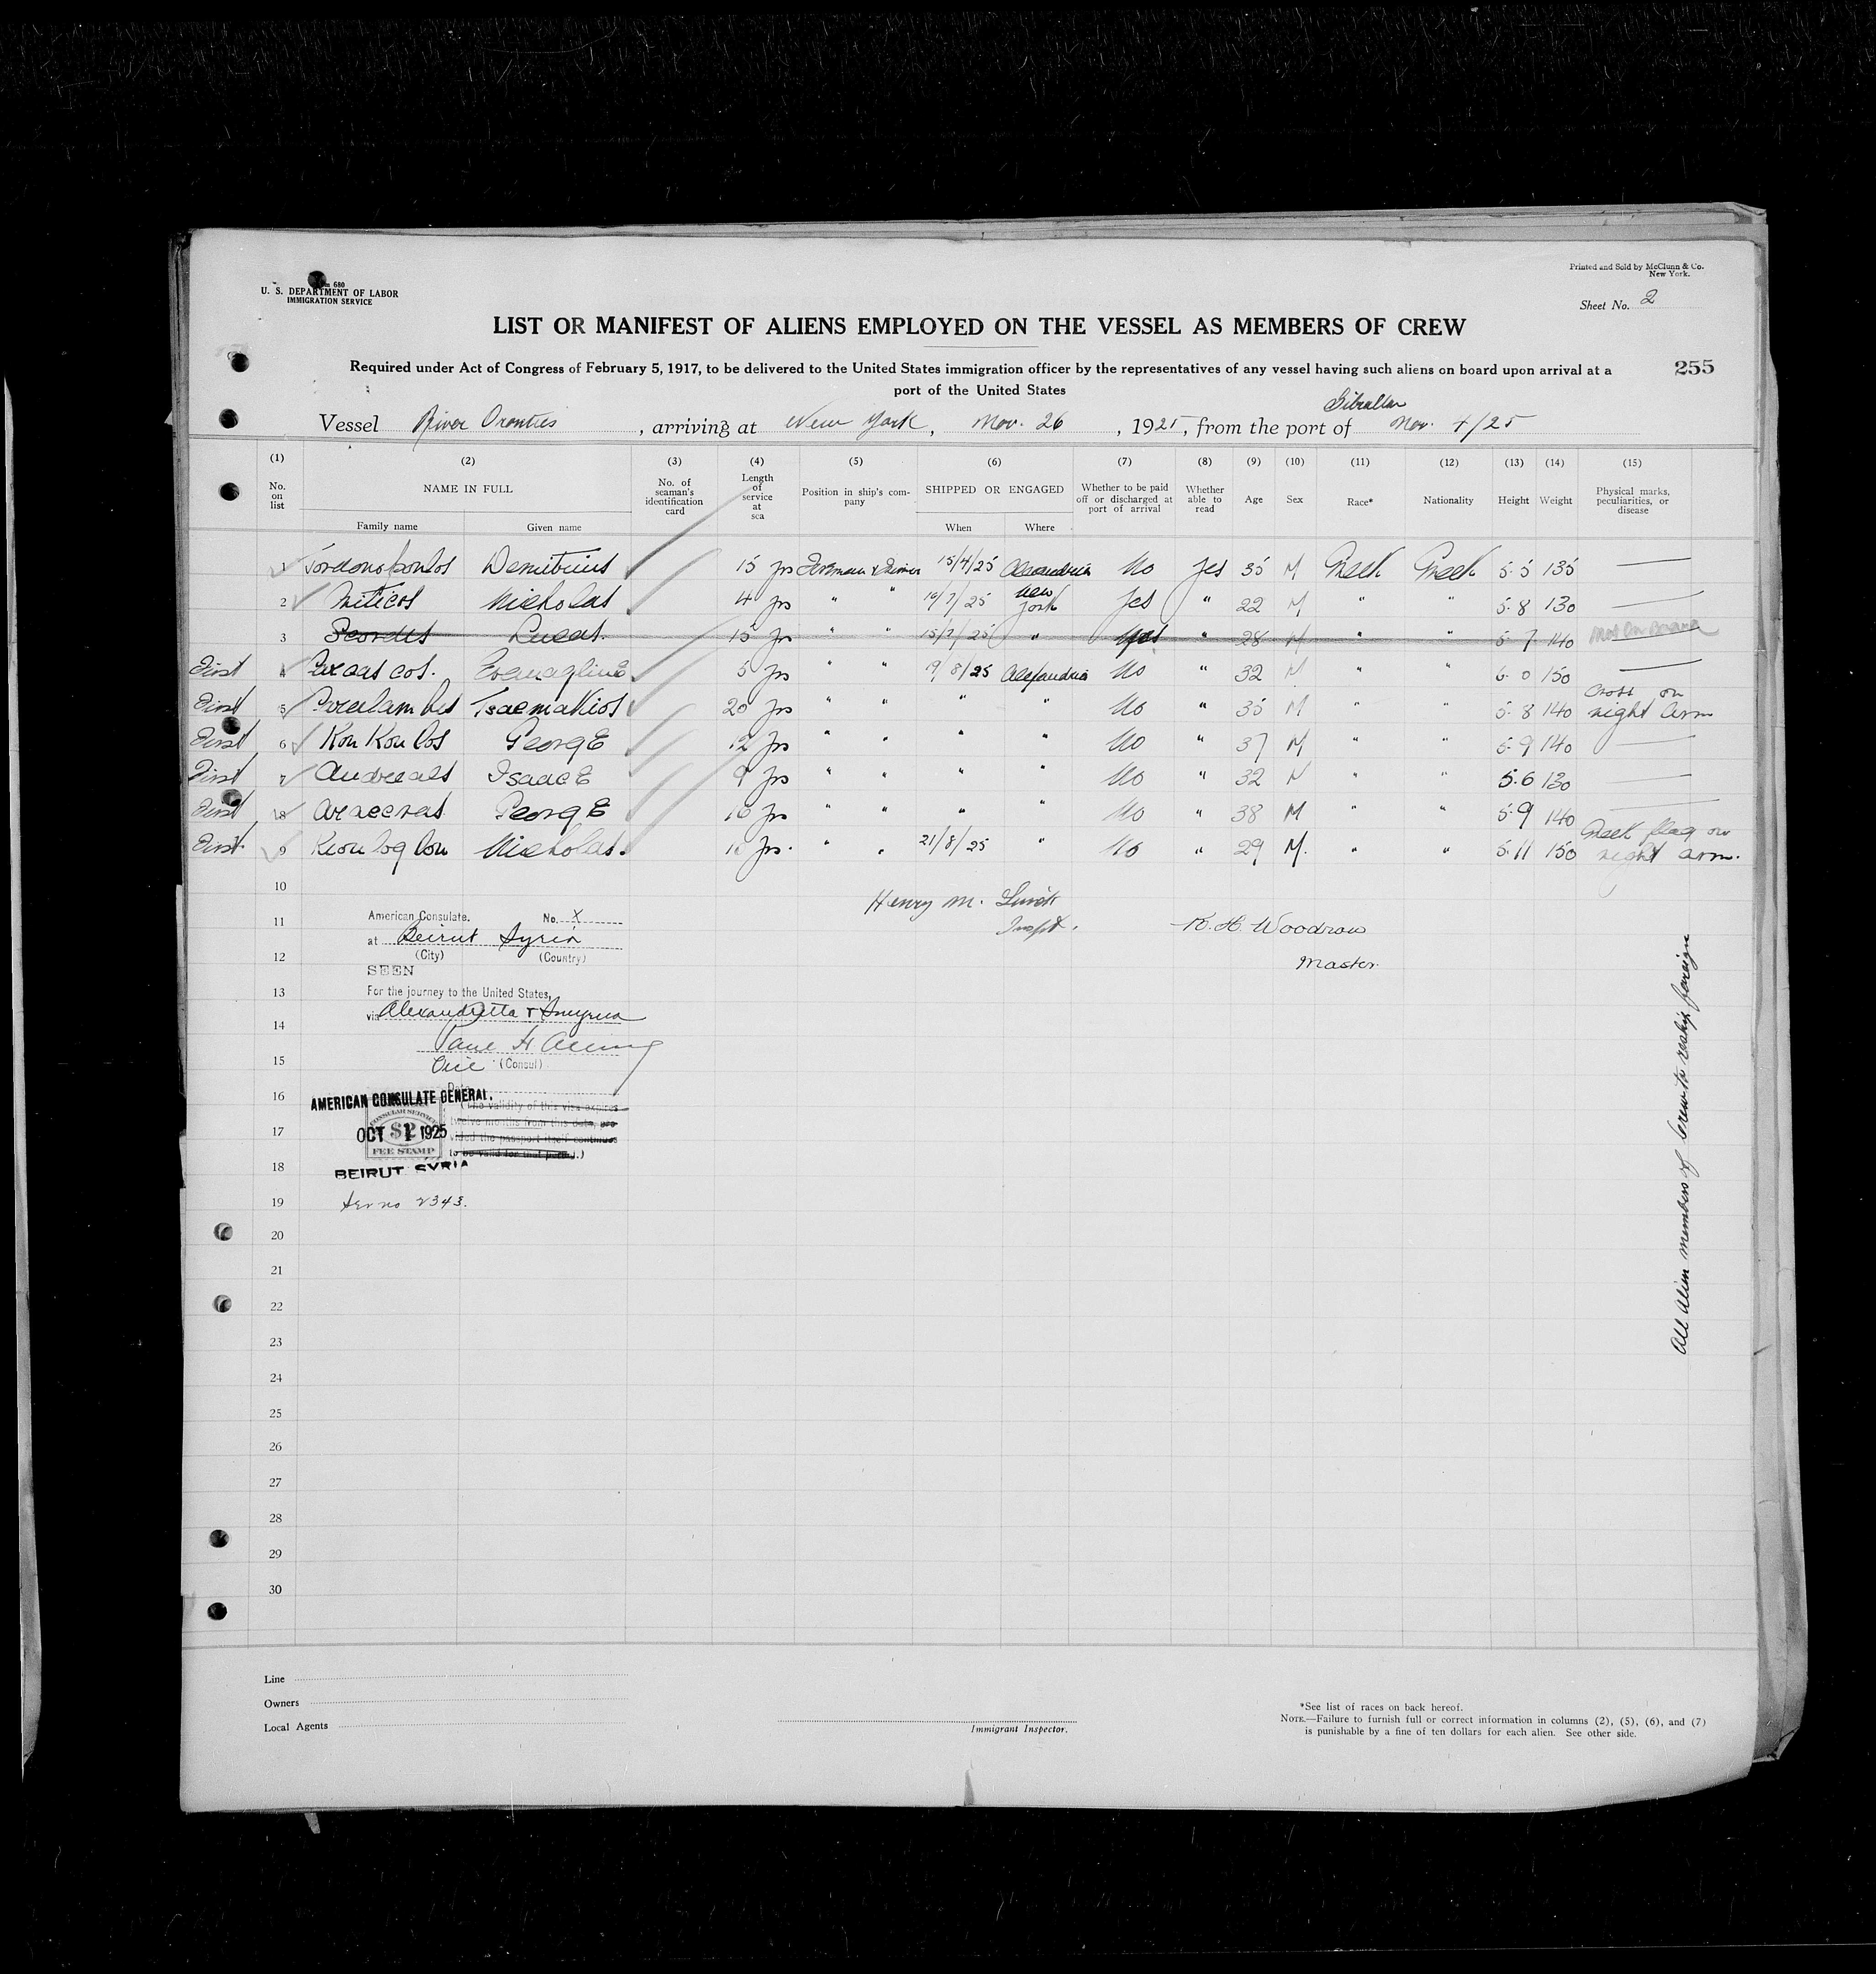 Form 680
U. S. DEPARTMENT OF LABOR
IMMIGRATION SERVICE
Printed and Sold by McClunn & Co.
New York.
Sheet No. 2
LIST OR MANIFEST OF ALIENS EMPLOYED ON THE VESSEL AS MEMBERS OF CREW
Required under Act of Congress of February 5, 1917, to be delivered to the United States immigration officer by the representatives of any vessel having such aliens on board upon arrival at a
port of the United States
255
Gibraltar
Vessel River Orontes, arriving at New York, Nov. 26, 1925, from the port of Nov. 4/25
(1) (2) (3) (4) (5) (6) (7) (8) (9) (10) (11) (12) (13) (14) (15)
No. on list
NAME IN FULL
Family name Given name
No. of seaman's identification card
Length of service at sea
Position in ship's company
SHIPPED OR ENGAGED
When Where
Whether to be paid off or discharged at port of arrival
Whether able to read
Age
Sex
Race*
Nationality
Height
Weight
Physical marks, peculiarities, or disease
1 15 yrs 15/4/25 Alexandria No Yes 35 M Greek Greek 5.5 135 —
2 Nicholas 4 yrs " " New York Yes " 22 M " " 5.8 130 —
3 Lucas. 15 yrs " " 15/7/25 " Yes " 28 M " " 5 7 140 Not on Board
First 4 5 yrs " " 19/8/25 Alexandria No " 32 M " " 6.0 150 —
First 5 20 yrs " " " " No " 35 M " " 5.8 140 Cross on right arm
First 6 Kon Kou los George 12 yrs " " " " No " 37 M " " 5.9 140 —
First 7 Isaac E 9 yrs " " " " No " 32 M " " 5.6 130 —
First 8 George " " " " No " 38 M " " 5.9 140 —
First 9 Nicholas. yrs. " " 21/8/25 " No " 29 M. " " 5.11 150 Greek flag on right arm.
10
Henry M.
Inspt.
R. H. Woodrow
Master.
11
American Consulate. No. X
at Beirut Syria
(City) (Country)
12
SEEN
13
For the journey to the United States,
via Alexandretta & Smyrna
14
Paul H Alling
15
Vice (Consul)
16
Date
AMERICAN CONSULATE GENERAL.
(The validity of this visa expires
twelve months from this date, pro
vided the passport itself continues
to be valid for that period.)
17
CONSULAR SERVICE
$2
FEE STAMP
OCT 1 1925
18
BEIRUT SYRIA
19
Ser no 2343.
20
21
22
23
24
25
26
27
28
29
30
All Alien members of Crew to reship foreign
Line
Owners
Local Agents
Immigrant Inspector.
*See list of races on back hereof.
NOTE.—Failure to furnish full or correct information in columns (2), (5), (6), and (7)
is punishable by a fine of ten dollars for each alien. See other side.